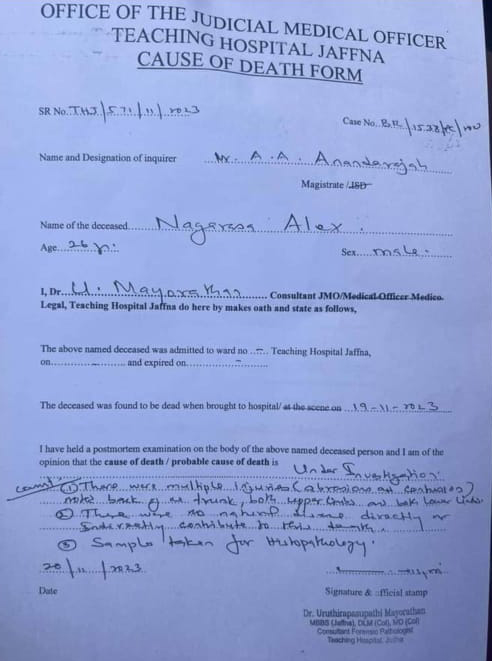 OFFICE OF THE JUDICIAL MEDICAL OFFICER
TEACHING HOSPITAL JAFFNA
CAUSE OF DEATH FORM
SR No. THJ/571/11/2023
Case No. B.R/1538/PC/
Name and Designation of inquirer Mr. A.A. Anandarajah
Magistrate /ISD
Name of the deceased Nagarasa Alex
Age 26 yrs
Sex male
I, Dr. U. Mayorathan Consultant JMO/Medical Officer Medico-
Legal, Teaching Hospital Jaffna do here by makes oath and state as follows,
The above named deceased was admitted to ward no Teaching Hospital Jaffna,
on and expired on
The deceased was found to be dead when brought to hospital/ at the scene on 19-11-2023
I have held a postmortem examination on the body of the above named deceased person and I am of the
opinion that the cause of death / probable cause of death is Under Investigation.
① There were multiple injuries (abrasions and contusions)
noted back of the trunk, both upper limbs and both lower limbs.
② There were no natural disease directly or
Indirectly contribute to this death.
③ Sample taken for Histopathology.
20/11/2023
Date
Signature & official stamp
Dr. Uruthirapasupathi Mayorathan
MBBS (Jaffna), DLM (Col), MD (Col)
Consultant Forensic Pathologist
Teaching Hospital, Jaffna